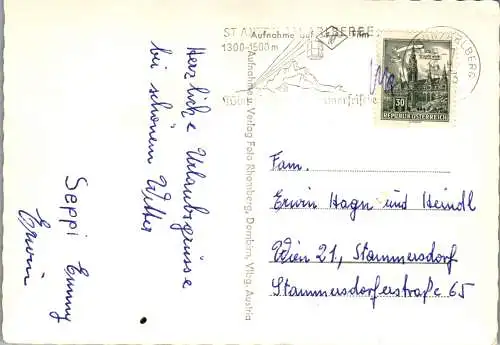 Herzliche Urlaubsgrüsse
bei schönem Wetter
Seppi Emmy
Erwin
Aufnahme u. Verlag Foto Rhomberg, Dornbirn, Vlbg. Austria
Aufnahme auf Film
ST. ANTON AM ARLBERG
1300-1500 m
30
REPUBLIK ÖSTERREICH
Fam.
Erwin Hagn und Heindl
Wien 21, Stammersdorf
Stammersdorferstraße 65